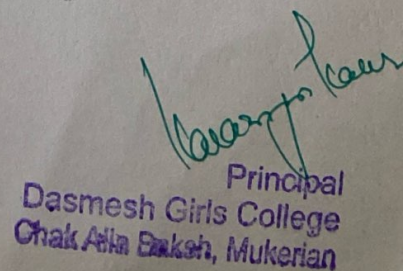 Principal
Dasmesh Girls College
Chak Alla Baksh, Mukerian